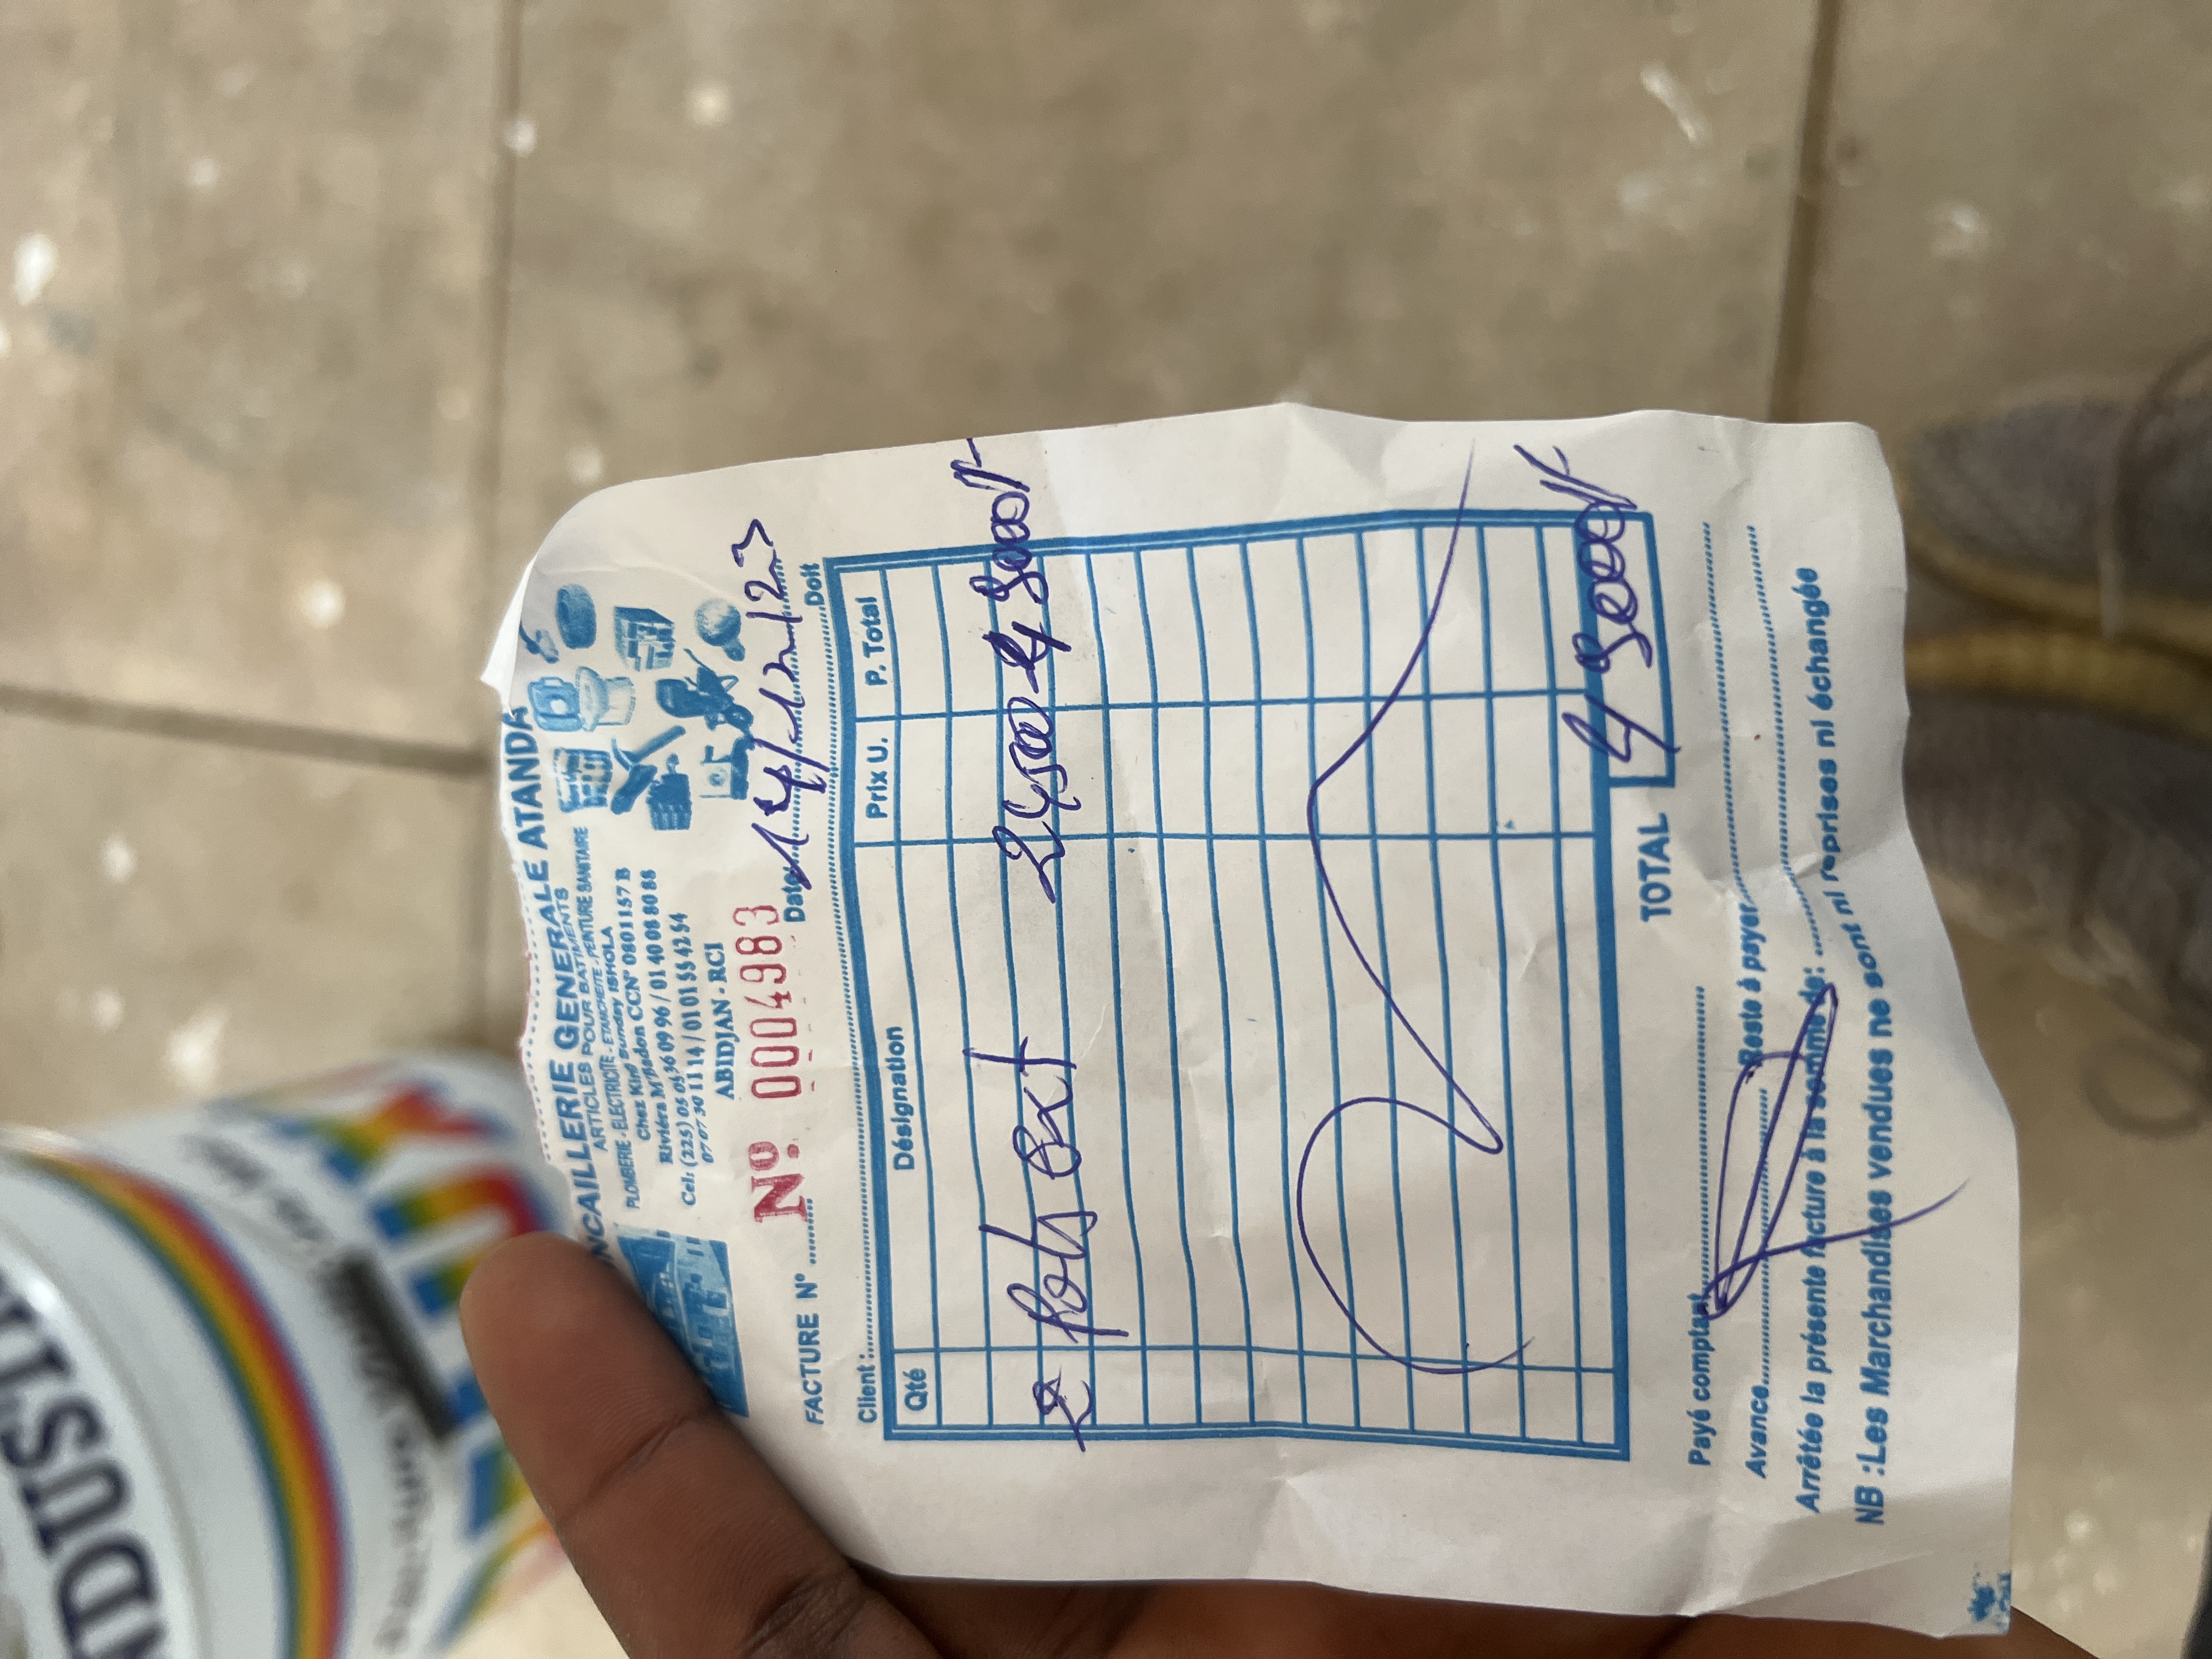 NDUST
LUX
NCAILLERIE GENERALE ATANDA
ARTICLES POUR BATIMENTS
PLOMBERIE - ELECTRICITE - ETANCHEITE - PEINTURE SANITAIRE
Chez King Sunday ISHOLA
Riviéra M'Badon CCN° 0801157 B
Cel: (225) 05 05 36 09 96 / 01 40 08 80 88
07 07 30 11 14 / 01 01 55 42 54
ABIDJAN - RCI
FACTURE N° .......... Nº 0004983 Date: 14/12/23
Client : Doit
Qté Désignation Prix U. P. Total
2 pots ext 24500 49000F
TOTAL 49000F
Payé comptant
Avance Reste à payer
Arrêtée la présente facture à la somme de:
NB :Les Marchandises vendues ne sont ni reprises ni échangée